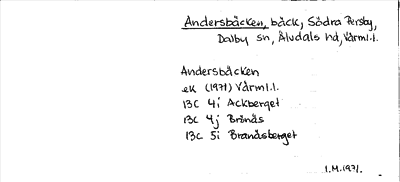 Andersbäcken, bäck, Södra Persby,
Dalby sn, Älvdals hd, Värml.l.
Andersbäcken
ek (1971) Värml.l.
13C 4i Ackberget
13C 4j Brönäs
13C 5i Brandsberget
I.M.1971.